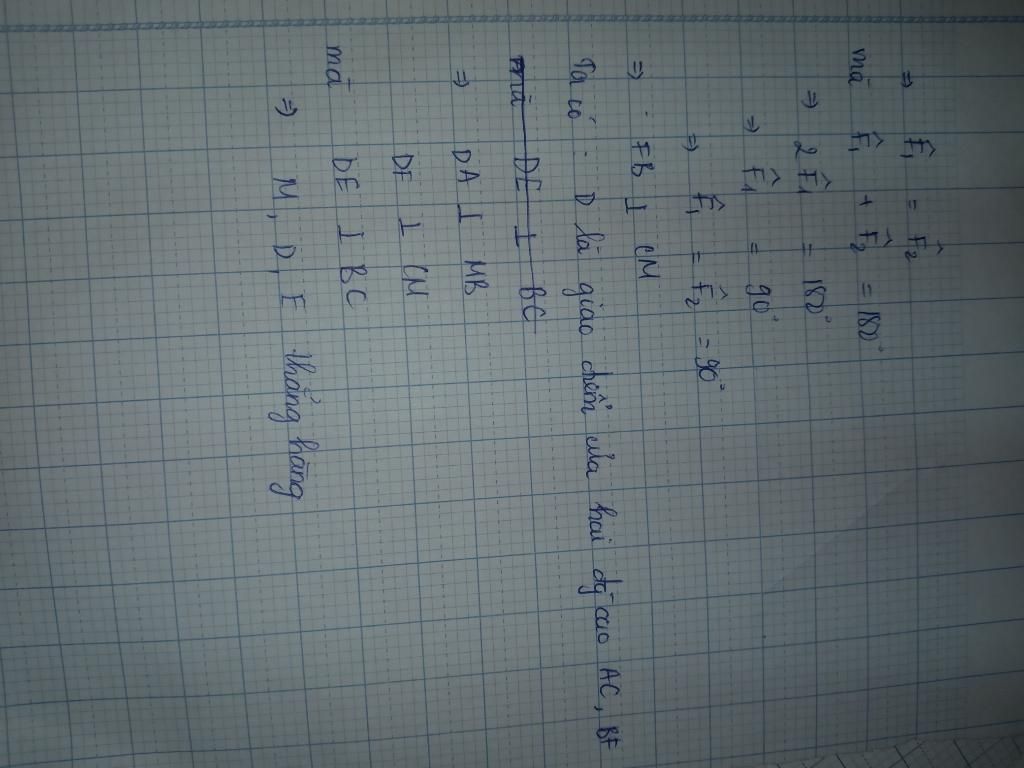 ⇒ F̂₁ = F̂₂
mà F̂₁ + F̂₂ = 180°
⇒ 2F̂₁ = 180°
⇒ F̂₁ = 90°
⇒ F̂₁ = F̂₂ = 90°
⇒ FB ⊥ CM
Ta có : D là giao điểm của hai đg cao AC, BF
mà DE ⊥ BC
⇒ DA ⊥ MB
DF ⊥ CM
mà DE ⊥ BC
⇒ M, D, E thẳng hàng